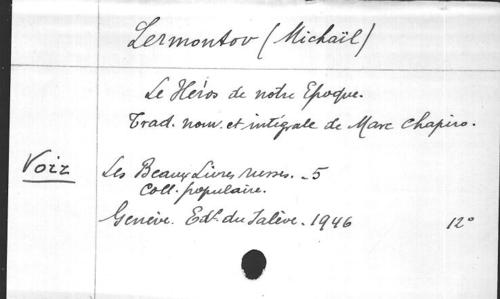 Lermontov (Michaïl)
Le Héros de notre Epoque.
Trad. nouv. et intégrale de Marc Chapiro.
Voir
Les Beaux Livres russes. - 5
Coll. populaire.
Genève. Edt. du Salève. - 1946 12°